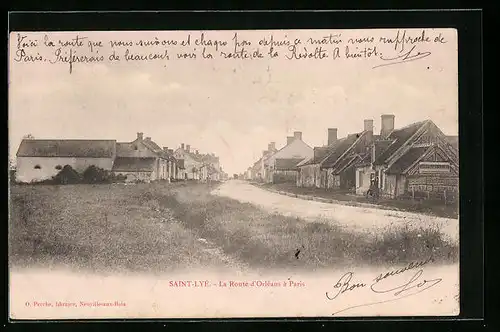 Voici la route que nous suivons et chaque pas depuis ce matin nous rapproche de
Paris. Préfèrerais de beaucoup voir la route de la Révolte. A bientôt.
SAINT-LYÉ. - La Route d'Orléans à Paris
Bon souvenir
O. Perche, libraire, Neuville-aux-Bois